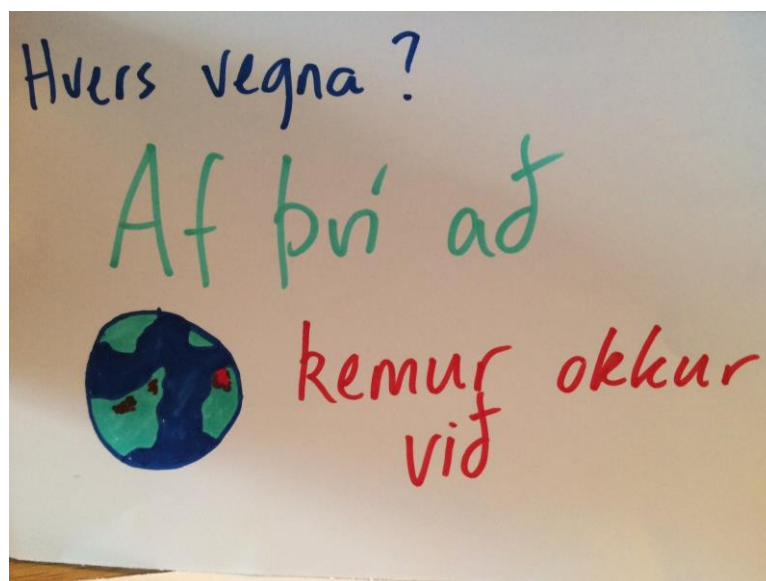 Hvers vegna?
Af því að
kemur okkur
við